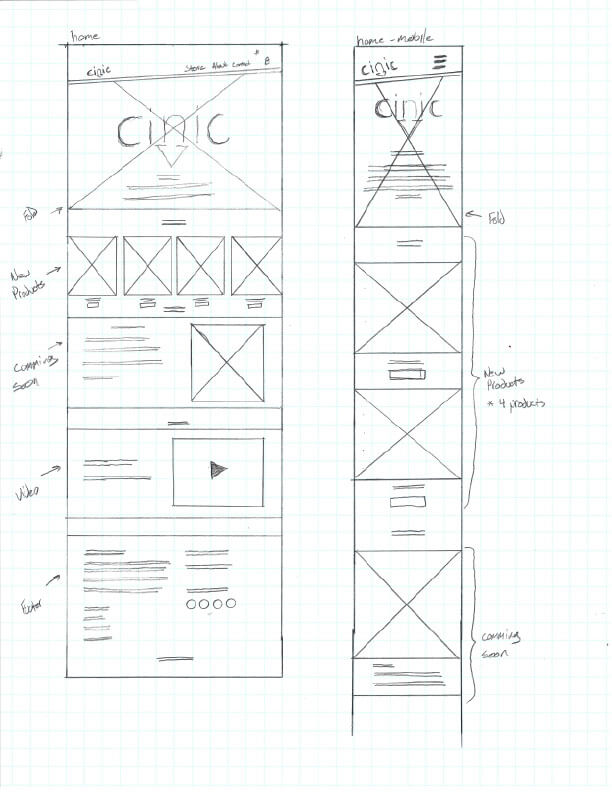 home
cinic
Store About Contact
cinic
Fold
New
Products
Comming
soon
Video
home - mobile
cinic
cinic
Fold
New
Products
* 4 products
comming
soon